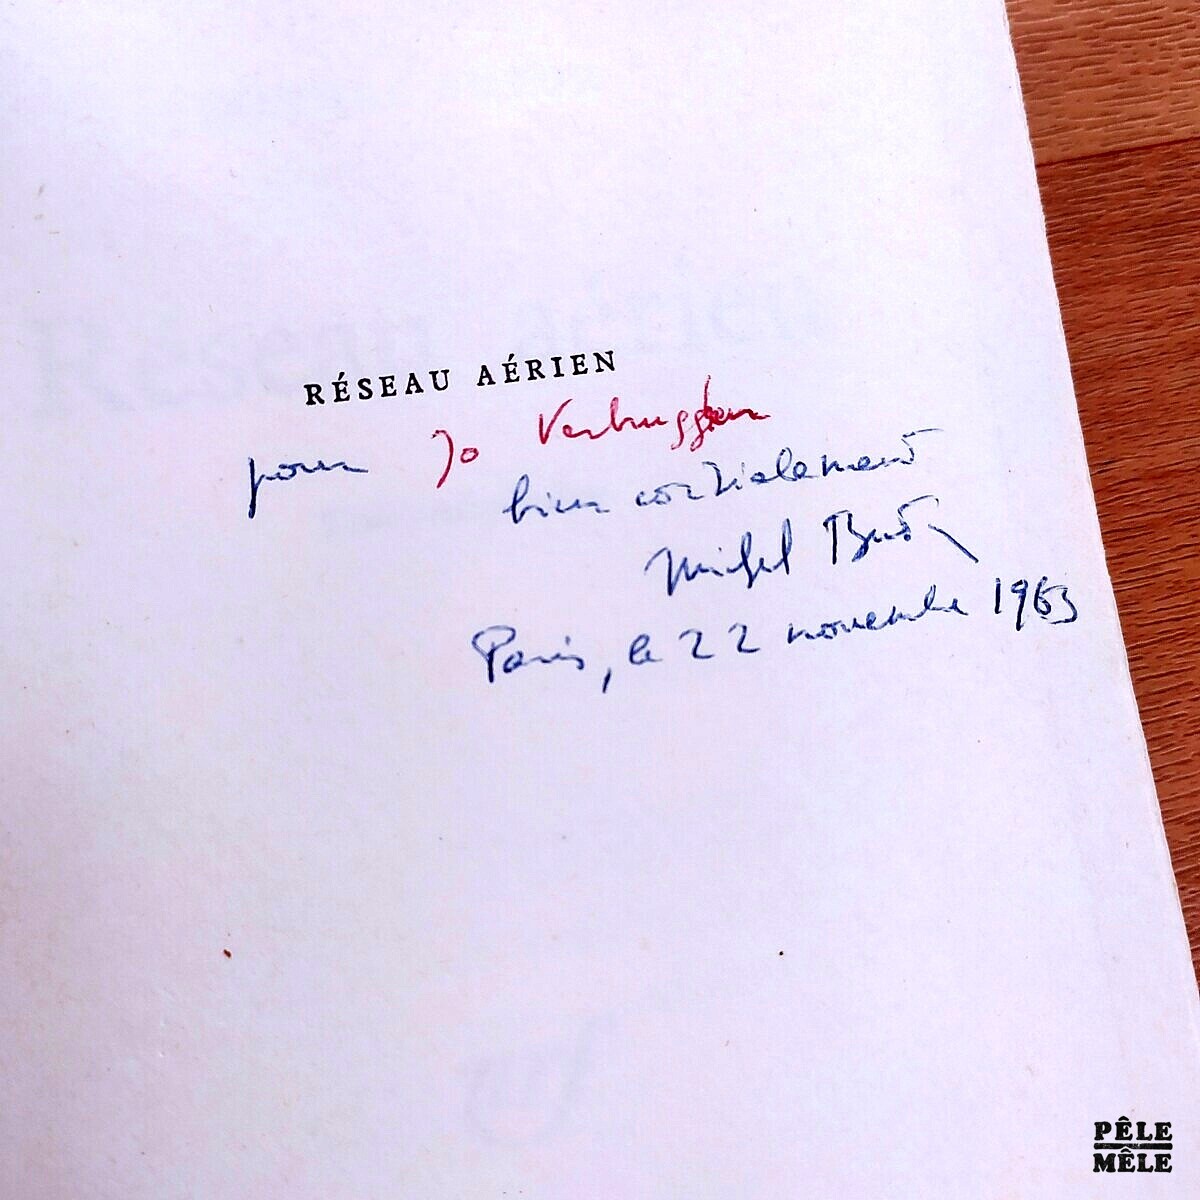 RÉSEAU AÉRIEN
pour Jo Verbruggen
bien cordialement
Michel Butor
Paris, le 22 novembre 1963
PÊLE
MÊLE